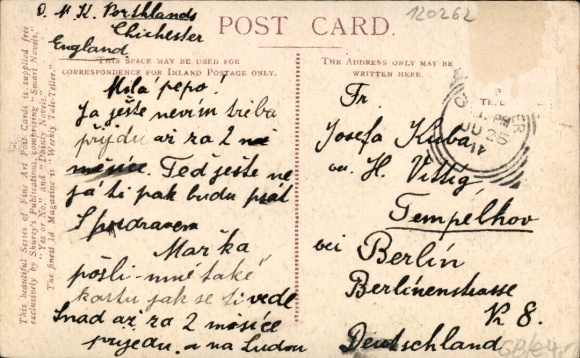 D. M. K. Porthlands
Chichester
England
120262
POST CARD.
THIS SPACE MAY BE USED FOR
CORRESPONDENCE FOR INLAND POSTAGE ONLY.
THE ADDRESS ONLY MAY BE
WRITTEN HERE.
This beautiful Series of Fine Art Post Cards is supplied free
exclusively by Shurey's Publications, comprising "Smart Novels,"
"Yes or No," and "Dainty Novels."
The finest 1d Magazine is "Weekly Tale-Teller."
Mila pepo!
Ja ješte nevim třeba
přijdu až za 2
měsice. Teď ješte ne
já ti pak budu psát
S pozdravem
Marška
pošli-mně také
kartu jak se ti vede
Snad až za 2 měsice
prijedu. a na Ludou
Fr.
Josefa Kuba
bei H. Vittig,
Tempelhov
bei Berlin
Berlinenstrasse
8.
Deutschland